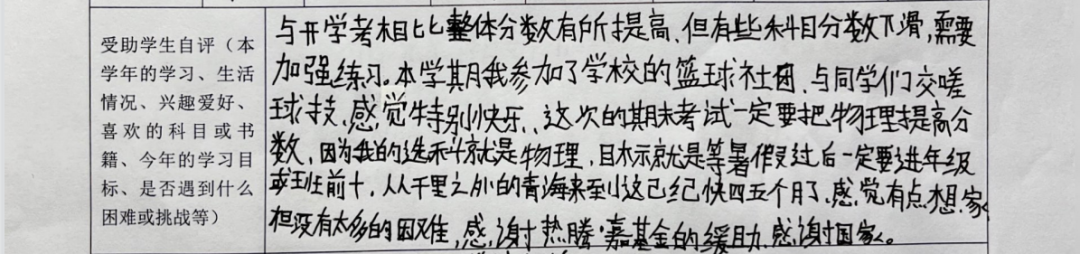 受助学生自评（本
学年的学习、生活
情况、兴趣爱好、
喜欢的科目或书
籍、今年的学习目
标、是否遇到什么
困难或挑战等）
与开学考相比整体分数有所提高、但有些科目分数下滑,需要
加强练习。本学期我参加了学校的篮球社团、与同学们交嗟
球技、感觉特别快乐、这次的期末考试一定要把物理提高分
数，因为我的选科就是物理，目标就是等暑假过后一定要进年级
或班前十，从千里之外的青海来到这已经快四五个月了、感觉有点想家
但没有太多的困难，感谢热腾·嘉基金的缓助、感谢国家。